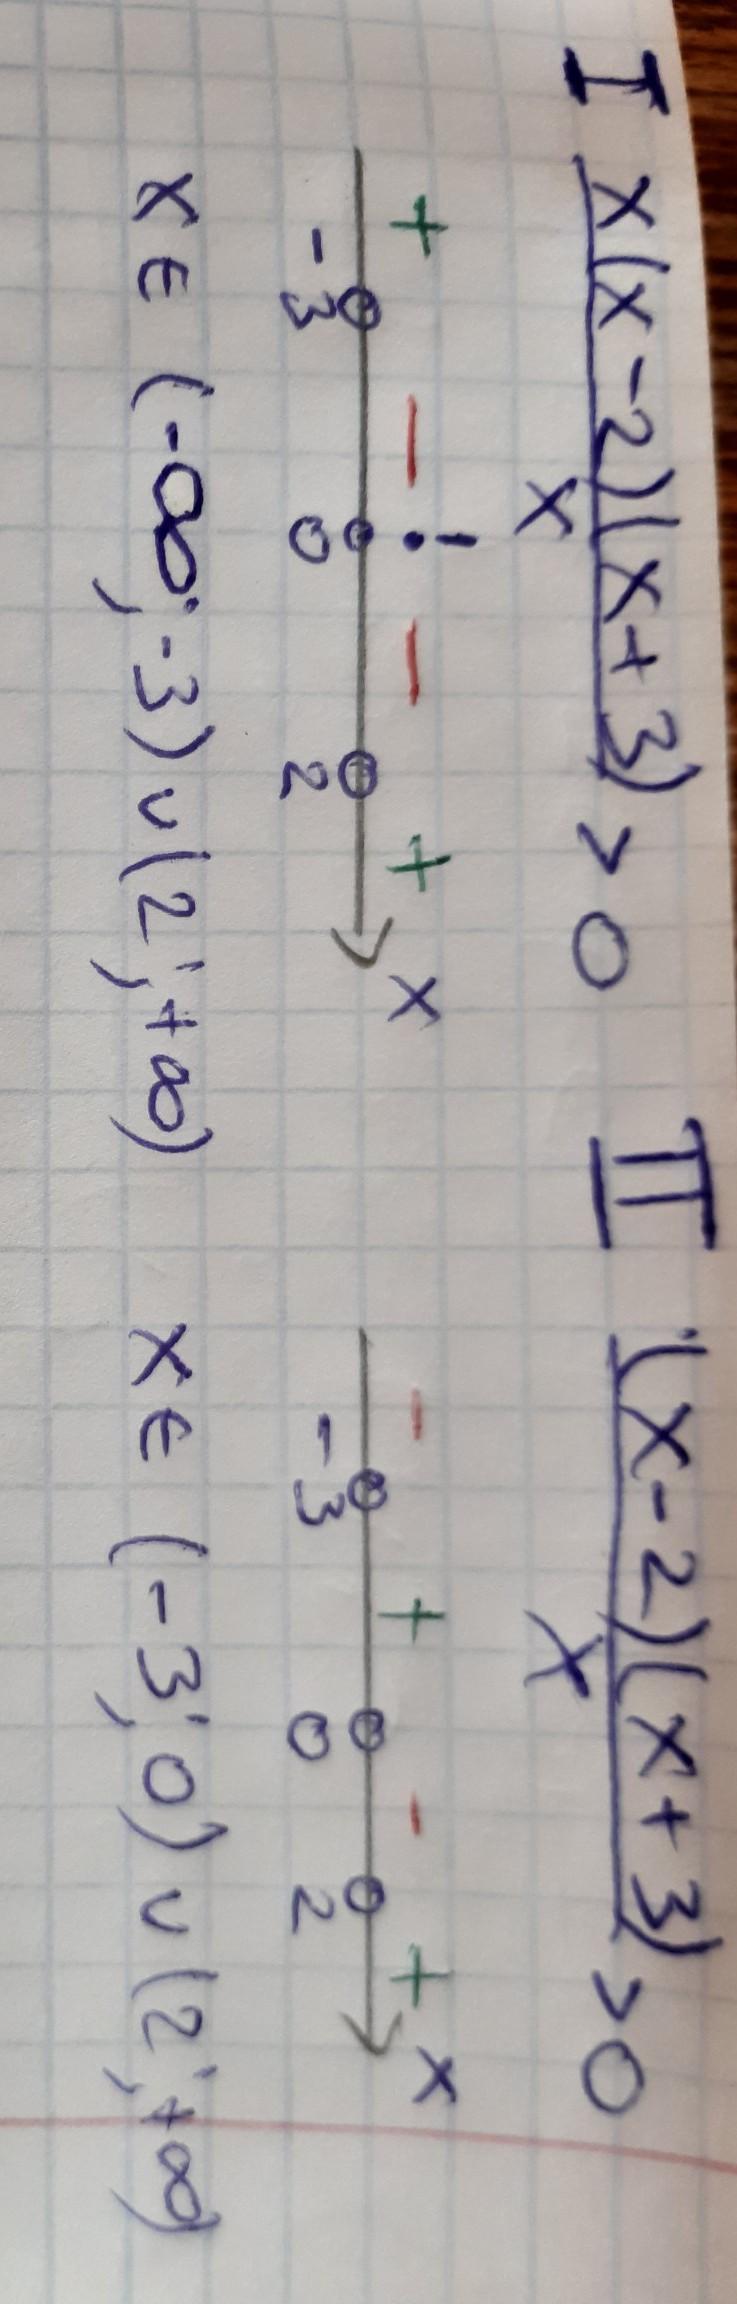 I x(x-2)(x+3)/x > 0
+ - ! - +
-3 0 2 x
x ∈ (-∞; -3) ∪ (2; +∞)
II (x-2)(x+3)/x > 0
- + - +
-3 0 2 x
x ∈ (-3; 0) ∪ (2; +∞)